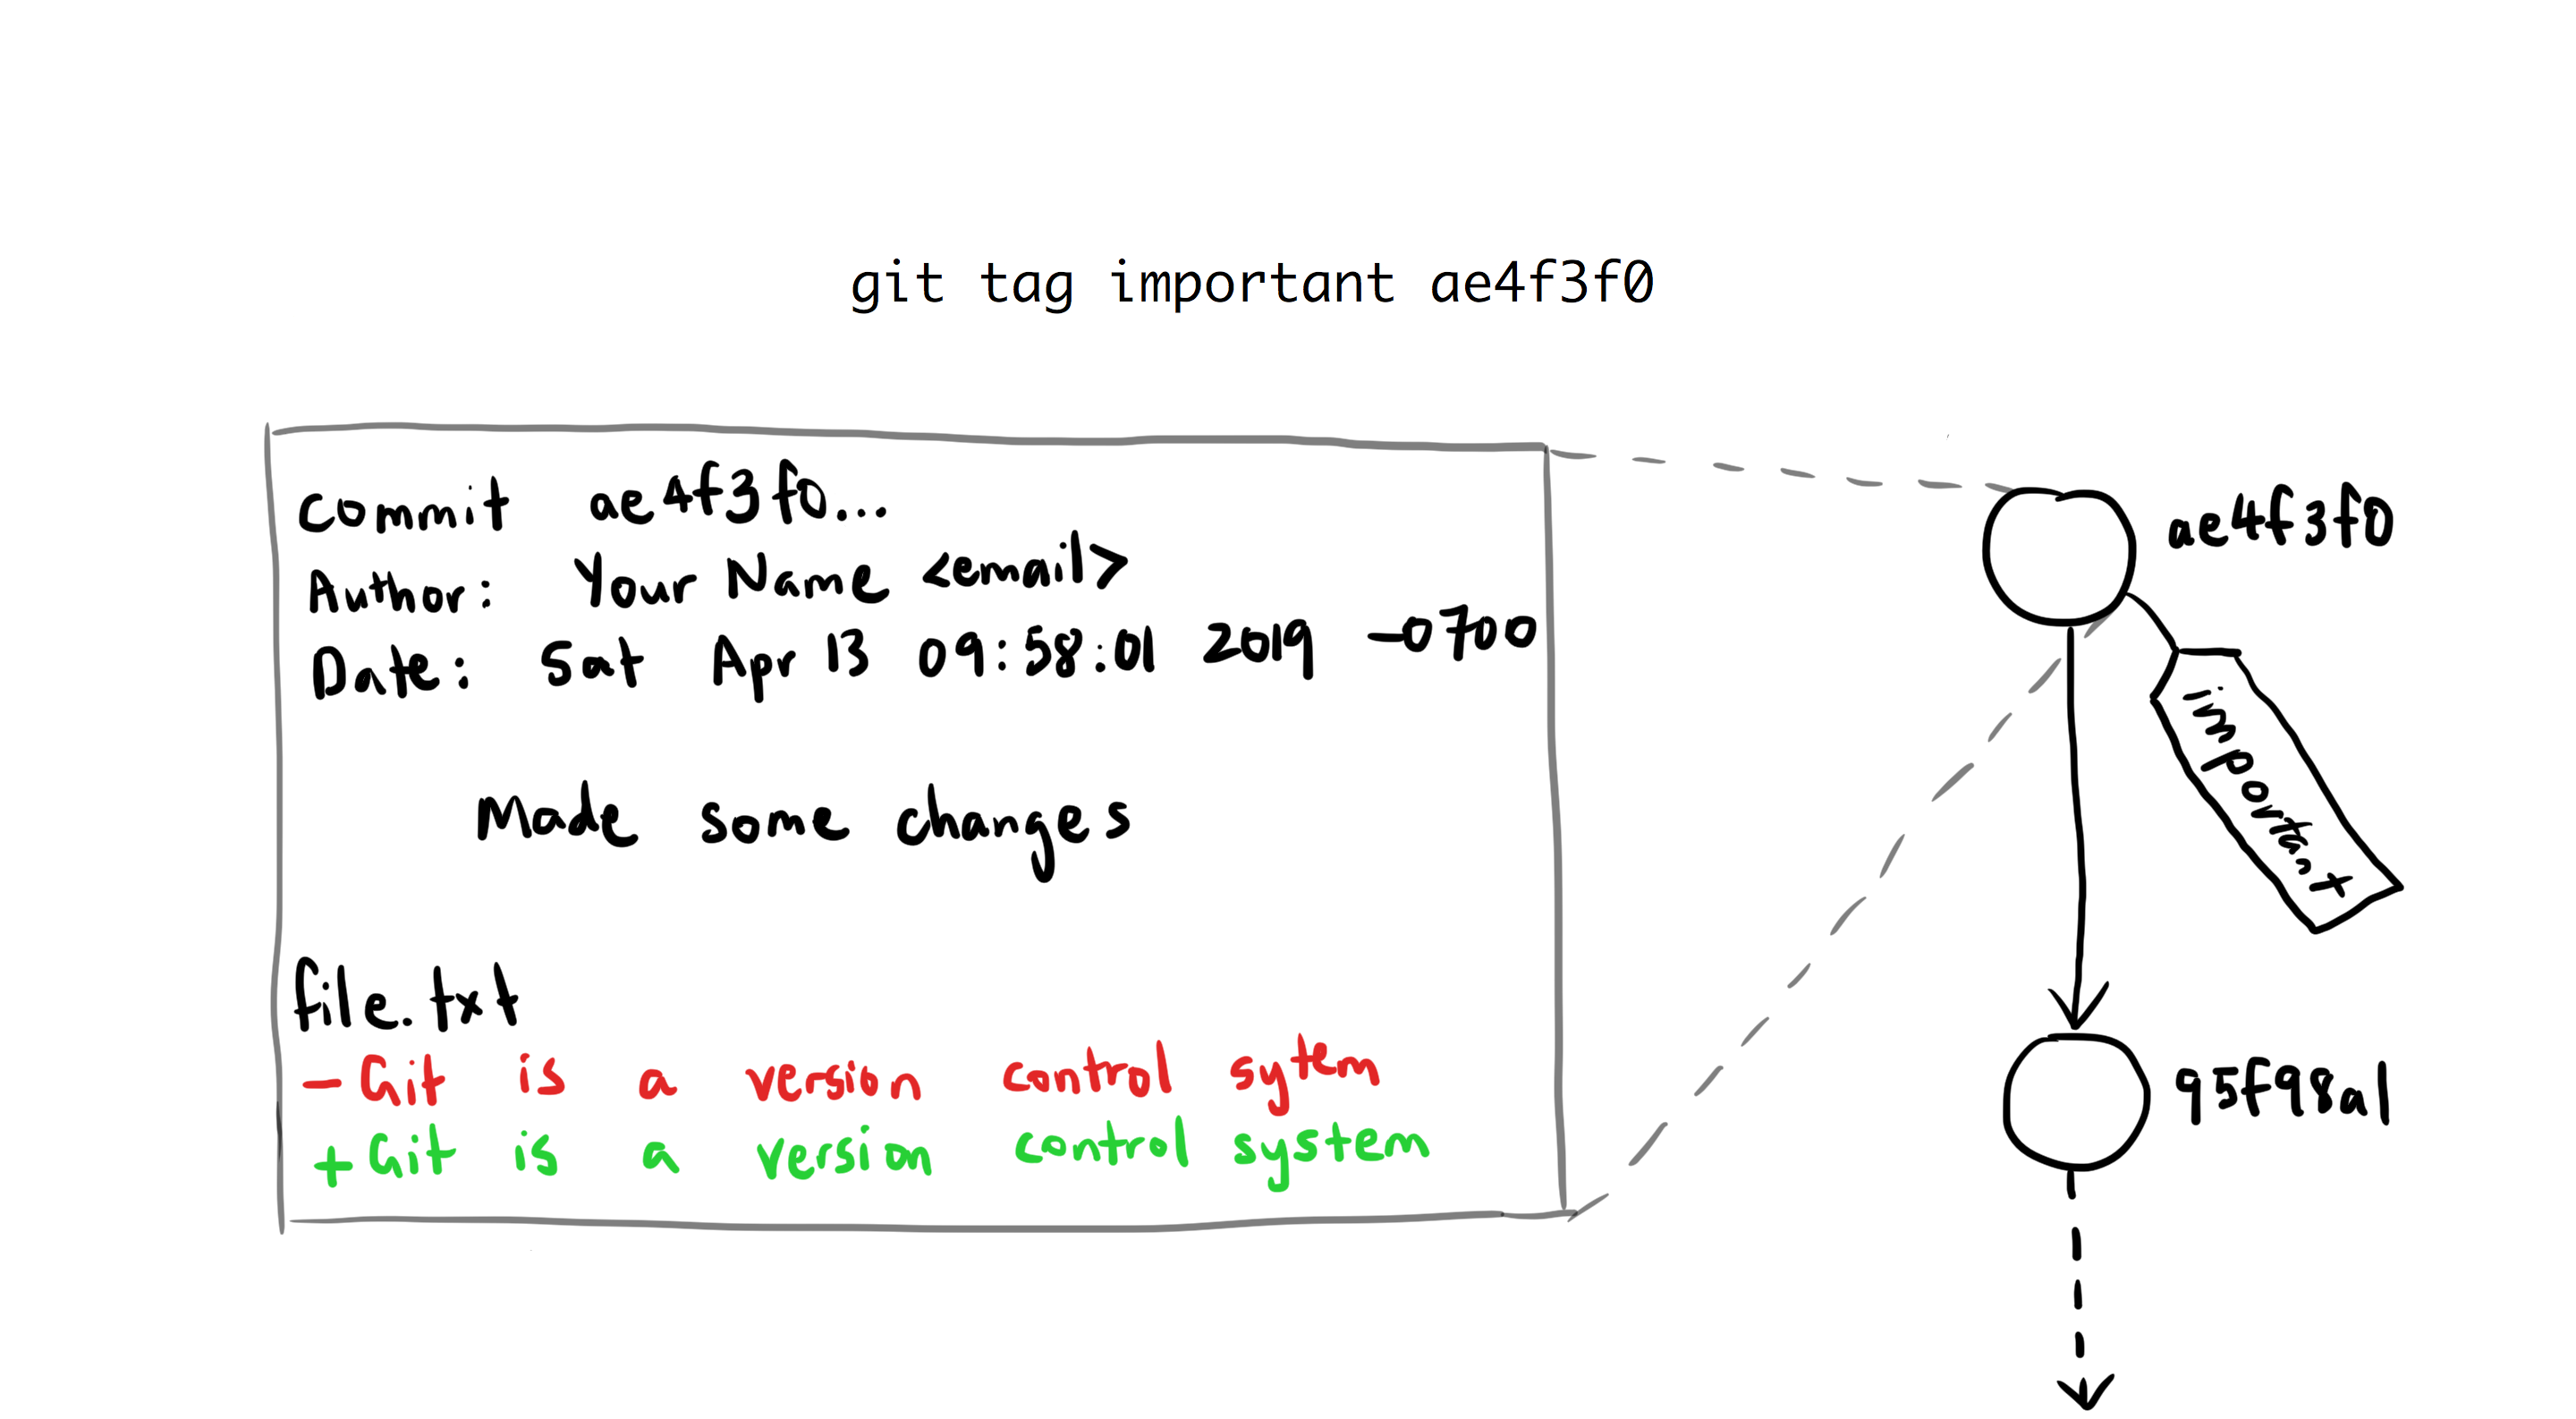 git tag important ae4f3f0
commit ae4f3f0...
Author: Your Name <email>
Date: Sat Apr 13 09:58:01 2019 -0700
Made some changes
file.txt
- Git is a version control sytem
+ Git is a version control system
ae4f3f0
important
95f98a1